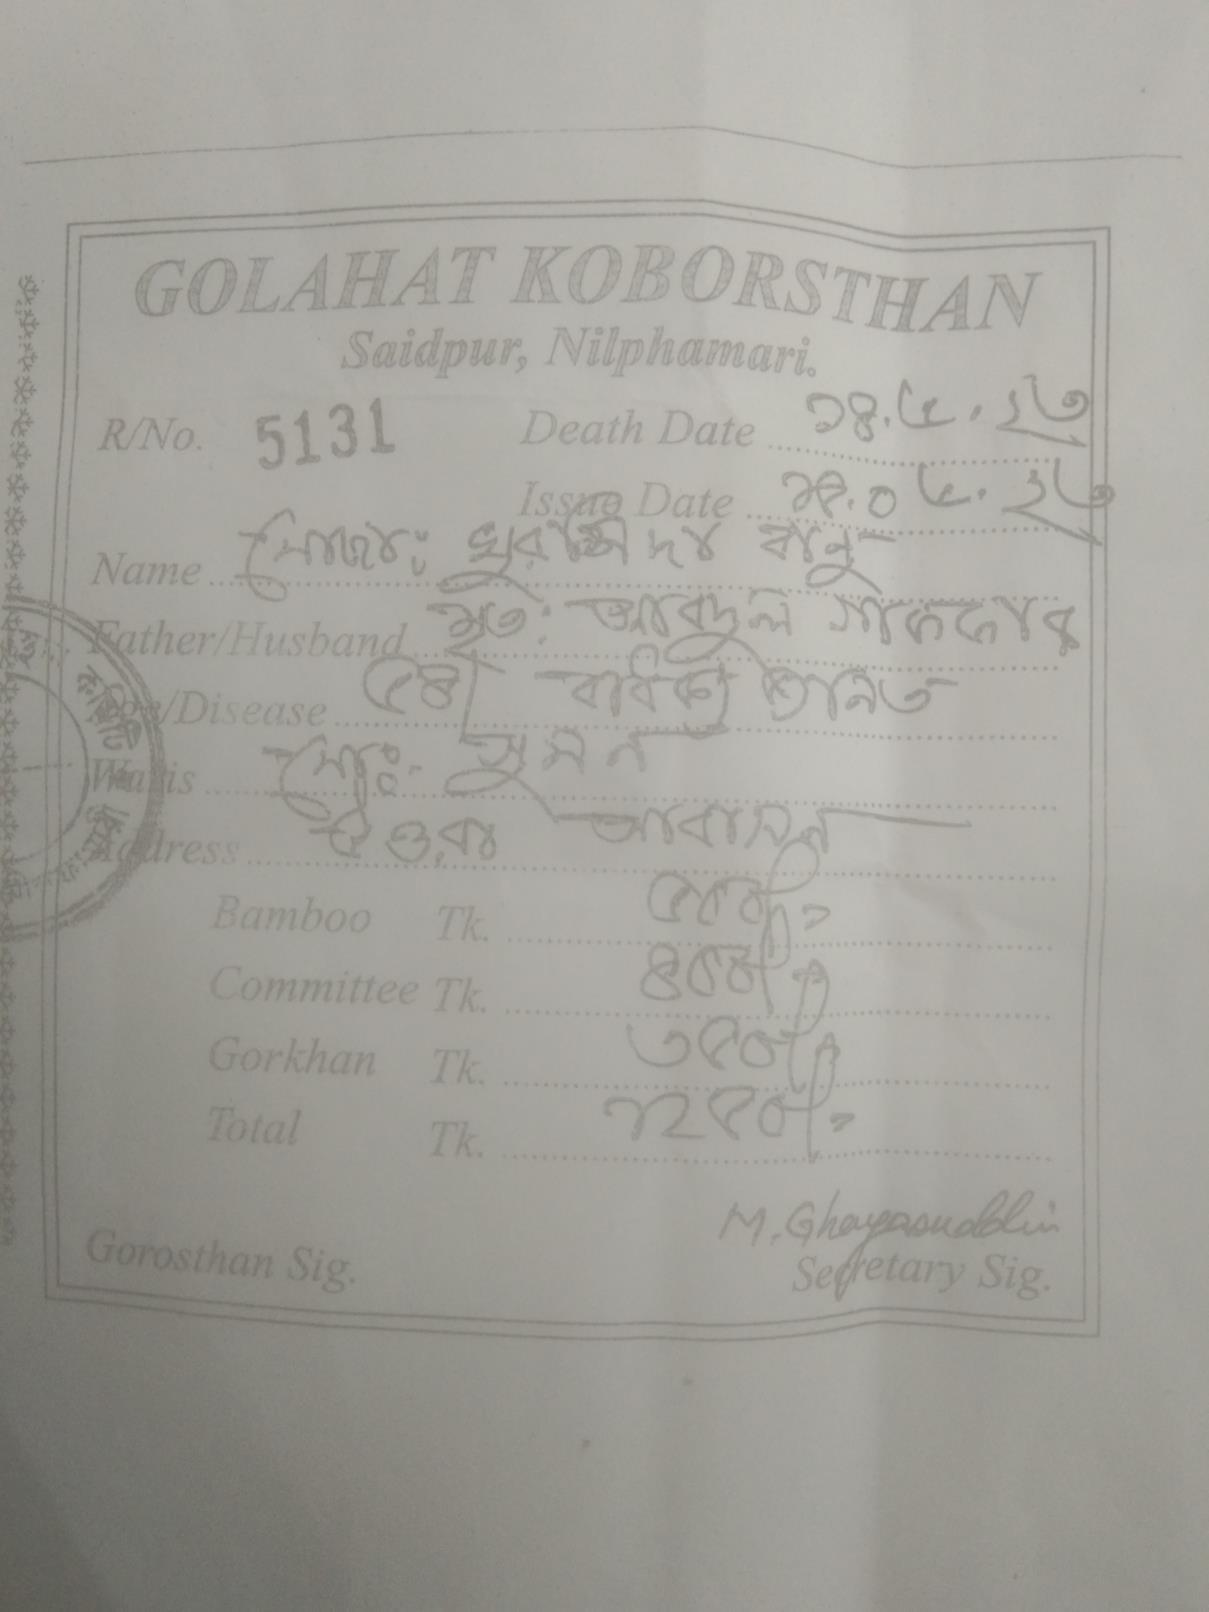 GOLAHAT KOBORSTHAN
Saidpur, Nilphamari.
R/No. 5131 Death Date ১৪.৫.২৩
Issue Date ১৫.০৫.২৩
Name মোছাঃ খুরশিদা বানু
Father/Husband মৃত: আব্দুল গাফফার
Age/Disease বার্ধক্য জনিত
Walis মোঃ সুমন
Address উওরা আবাসন
Bamboo Tk. ৫০০/=
Committee Tk. ৪০০/=
Gorkhan Tk. ৩৫০/=
Total Tk. ১২৫০/=
M. Ghayasuddin
Gorosthan Sig. Secretary Sig.
কমিটি